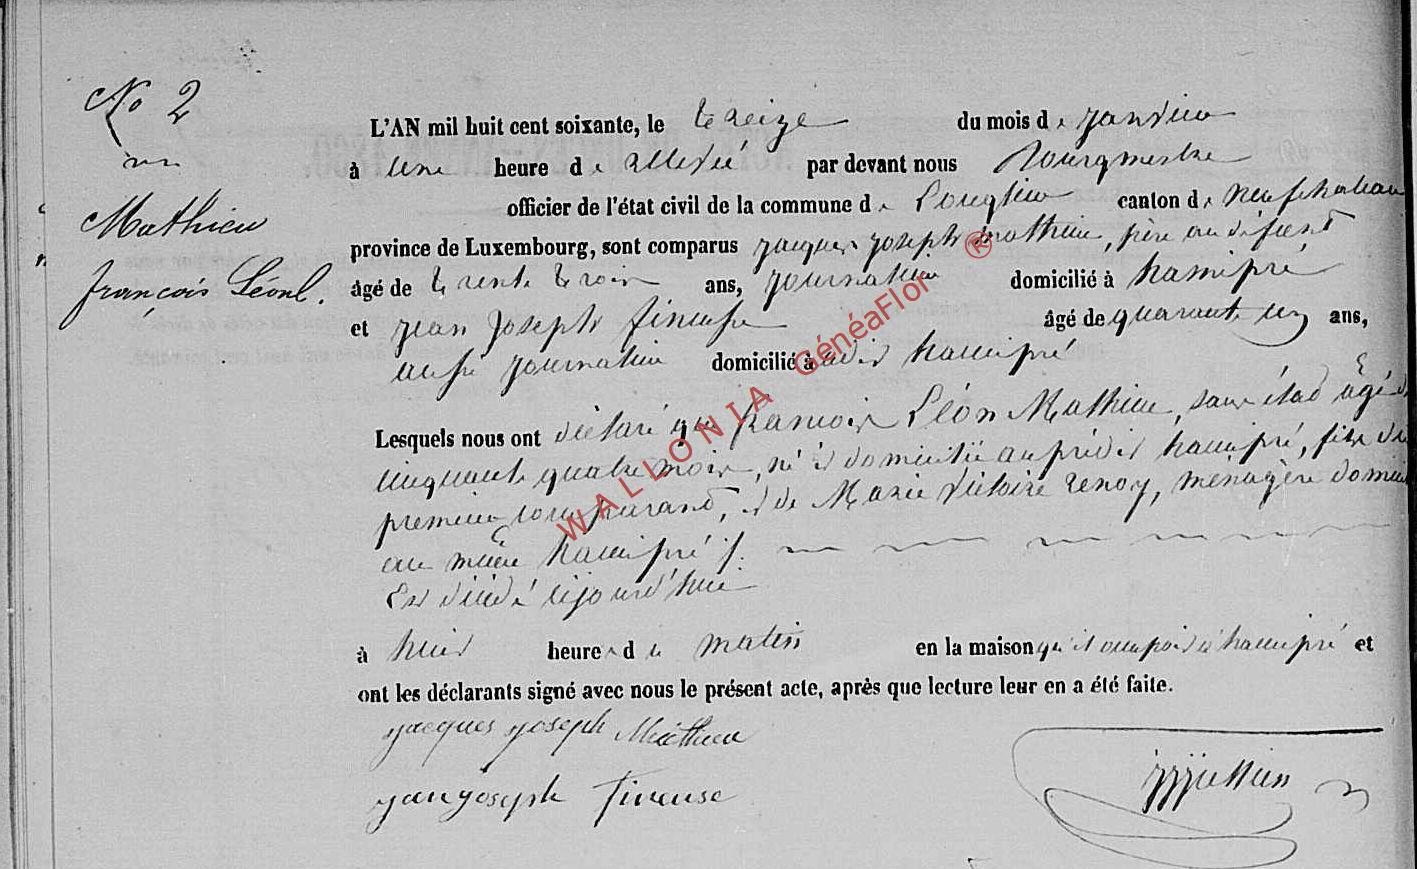 No 2
Mathieu
françois Léonl.
L'AN mil huit cent soixante, le treize du mois de janvier
à une heure de relevée par devant nous Bourgmestre
officier de l'état civil de la commune de Longlier canton de neufchateau
province de Luxembourg, sont comparus jacques joseph mathieu, père au défunt
âgé de trente trois ans, journalier domicilié à hamipré
et jean joseph fineuse âgé de quarante un ans,
aussi journalier domicilié à hamipré
Lesquels nous ont déclaré que francois Léon Mathieu, sans état âgé de
cinquante quatre mois, né et domicilié au prédit hamipré, fils du
premier comparant, et de Marie Victoire renoy, ménagère domici
au même hamipré
Est décédé cejourd'hui
à huit heures du matin en la maison qu'il occupait à hamipré et
ont les déclarants signé avec nous le présent acte, après que lecture leur en a été faite.
jacques joseph Mathieu
jean joseph fineuse
WALLONIA GénéaFlor ®